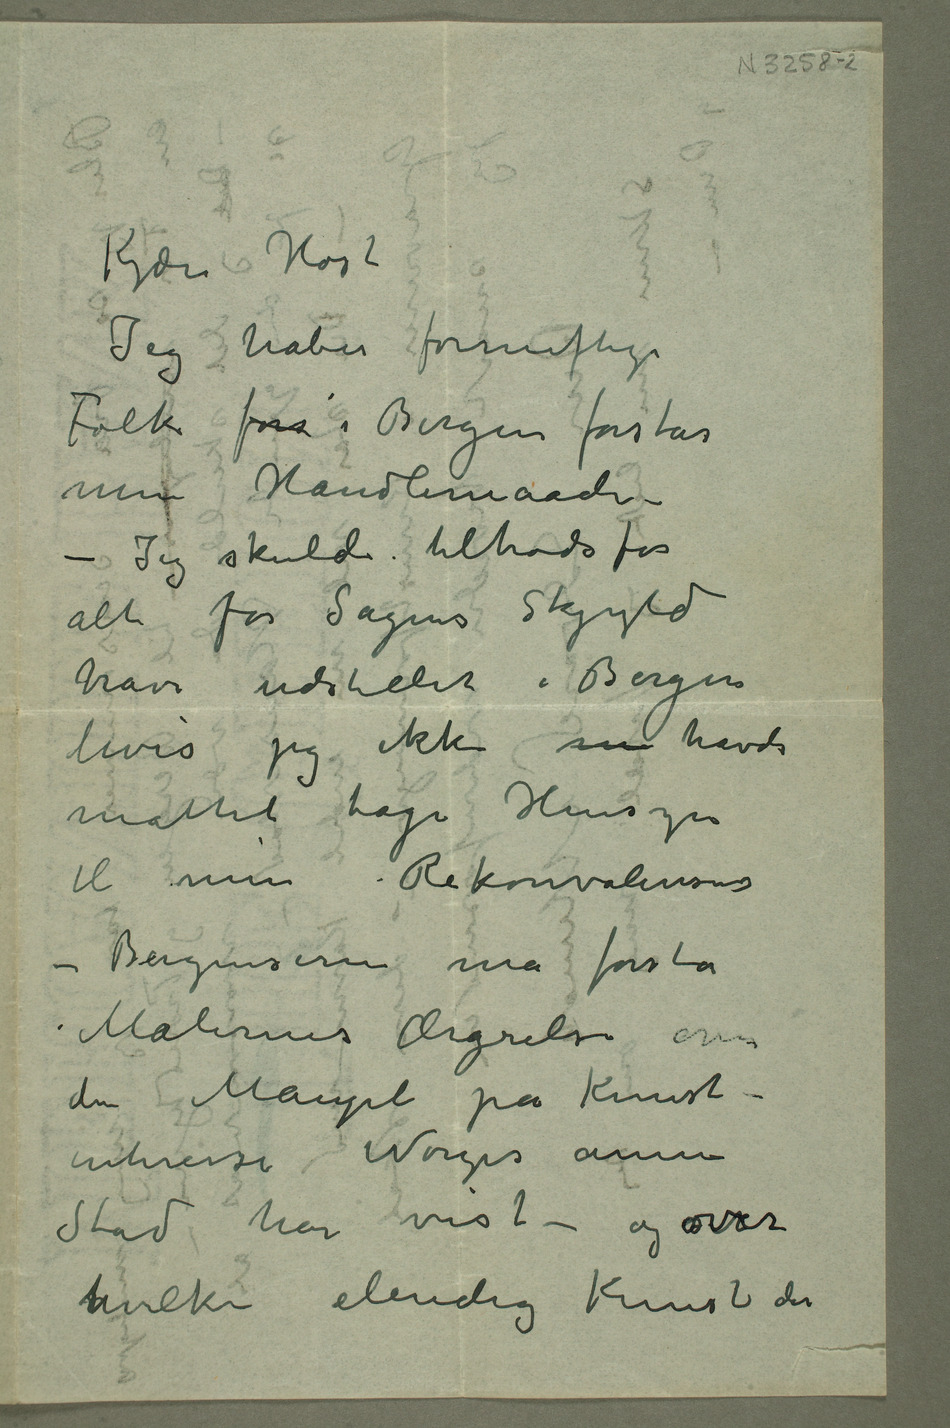 N 3258-2
Kjære Høst
Jeg håber fornuftige
Folk for i Bergen forstår
min Handlemaade
– Jeg skulde tiltrods for
alt for Sagens Skjyld
have udstillet i Bergen
hvis jeg ikke havde
måttet tage Hensyn
til min Rekonvalensens
– Bergenserne må forstå
Malernes Ærgrelse om
den Mangel på Kunst-
interesse Norges anden
Stad har vist – og over
hvilken elendig Kunst der